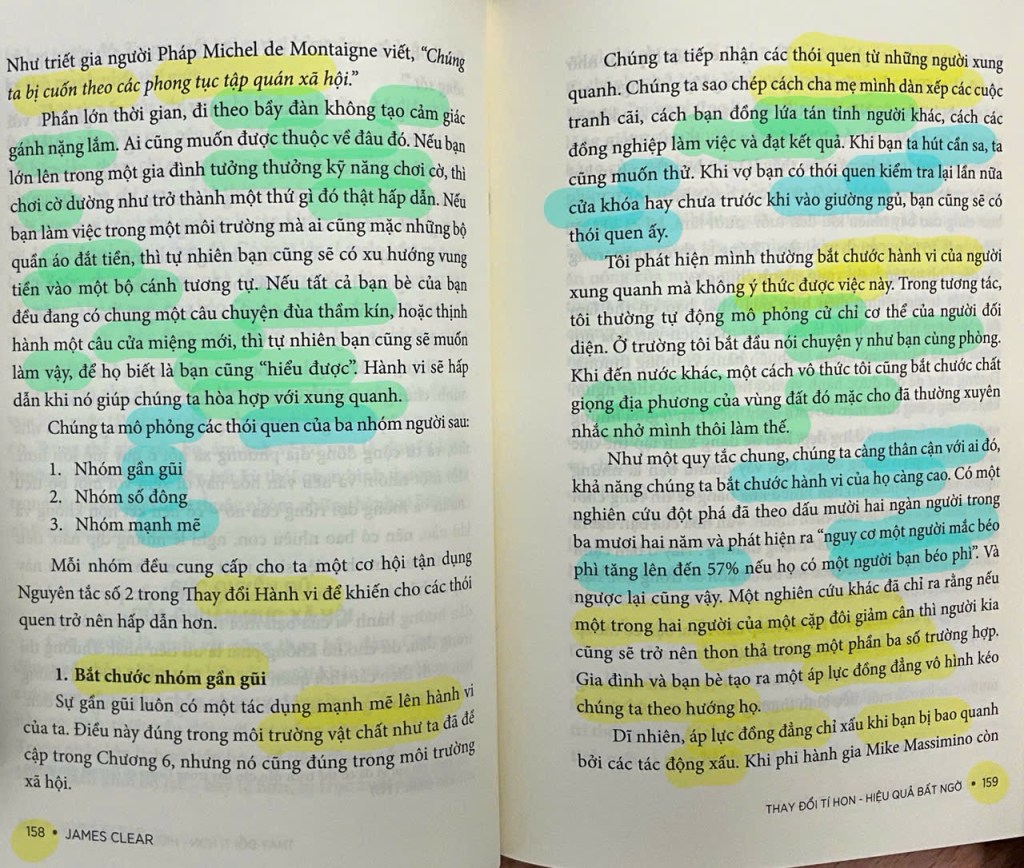 Như triết gia người Pháp Michel de Montaigne viết, “Chúng
ta bị cuốn theo các phong tục tập quán xã hội.”
Phần lớn thời gian, đi theo bầy đàn không tạo cảm giác
gánh nặng lắm. Ai cũng muốn được thuộc về đâu đó. Nếu bạn
lớn lên trong một gia đình tưởng thưởng kỹ năng chơi cờ, thì
chơi cờ dường như trở thành một thứ gì đó thật hấp dẫn. Nếu
bạn làm việc trong một môi trường mà ai cũng mặc những bộ
quần áo đắt tiền, thì tự nhiên bạn cũng sẽ có xu hướng vung
tiền vào một bộ cánh tương tự. Nếu tất cả bạn bè của bạn
đều đang có chung một câu chuyện đùa thầm kín, hoặc thịnh
hành một câu cửa miệng mới, thì tự nhiên bạn cũng sẽ muốn
làm vậy, để họ biết là bạn cũng “hiểu được”. Hành vi sẽ hấp
dẫn khi nó giúp chúng ta hòa hợp với xung quanh.
Chúng ta mô phỏng các thói quen của ba nhóm người sau:
1. Nhóm gần gũi
2. Nhóm số đông
3. Nhóm mạnh mẽ
Mỗi nhóm đều cung cấp cho ta một cơ hội tận dụng
Nguyên tắc số 2 trong Thay đổi Hành vi để khiến cho các thói
quen trở nên hấp dẫn hơn.
1. Bắt chước nhóm gần gũi
Sự gần gũi luôn có một tác dụng mạnh mẽ lên hành vi
của ta. Điều này đúng trong môi trường vật chất như ta đã đề
cập trong Chương 6, nhưng nó cũng đúng trong môi trường
xã hội.
158 • JAMES CLEAR
Chúng ta tiếp nhận các thói quen từ những người xung
quanh. Chúng ta sao chép cách cha mẹ mình dàn xếp các cuộc
tranh cãi, cách bạn đồng lứa tán tỉnh người khác, cách các
đồng nghiệp làm việc và đạt kết quả. Khi bạn ta hút cần sa, ta
cũng muốn thử. Khi vợ bạn có thói quen kiểm tra lại lần nữa
cửa khóa hay chưa trước khi vào giường ngủ, bạn cũng sẽ có
thói quen ấy.
Tôi phát hiện mình thường bắt chước hành vi của người
xung quanh mà không ý thức được việc này. Trong tương tác,
tôi thường tự động mô phỏng cử chỉ cơ thể của người đối
diện. Ở trường tôi bắt đầu nói chuyện y như bạn cùng phòng.
Khi đến nước khác, một cách vô thức tôi cũng bắt chước chất
giọng địa phương của vùng đất đó mặc cho đã thường xuyên
nhắc nhở mình thôi làm thế.
Như một quy tắc chung, chúng ta càng thân cận với ai đó,
khả năng chúng ta bắt chước hành vi của họ càng cao. Có một
nghiên cứu đột phá đã theo dấu mười hai ngàn người trong
ba mươi hai năm và phát hiện ra “nguy cơ một người mắc béo
phì tăng lên đến 57% nếu họ có một người bạn béo phì”. Và
ngược lại cũng vậy. Một nghiên cứu khác đã chỉ ra rằng nếu
một trong hai người của một cặp đôi giảm cân thì người kia
cũng sẽ trở nên thon thả trong một phần ba số trường hợp.
Gia đình và bạn bè tạo ra một áp lực đồng đẳng vô hình kéo
chúng ta theo hướng họ.
Dĩ nhiên, áp lực đồng đẳng chỉ xấu khi bạn bị bao quanh
bởi các tác động xấu. Khi phi hành gia Mike Massimino còn
THAY ĐỔI TÍ HON - HIỆU QUẢ BẤT NGỜ • 159